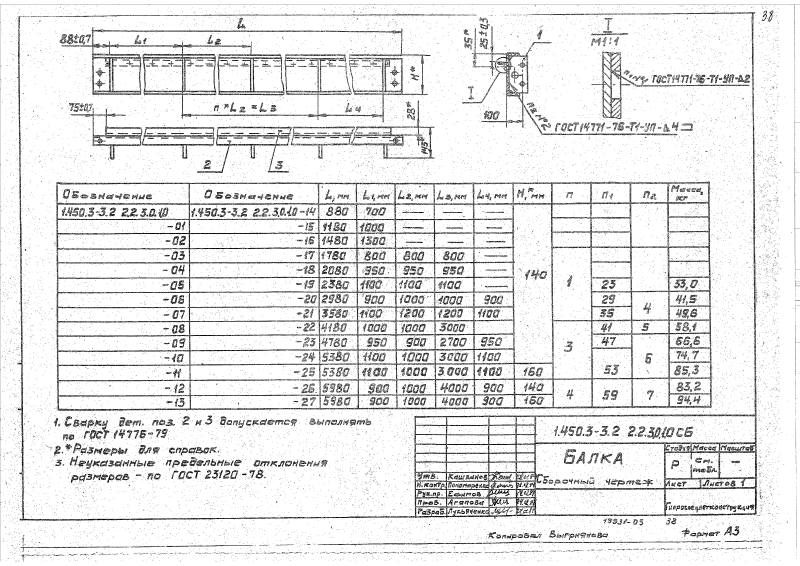 38
L
88±0,7 L1 L2
H*
n*L2 = L3 L4
75±0,7
28*
145*
2 3
35*
25±0,3
1
I
100
I
М1:1
ГОСТ 14771-76-Т1-УП-Δ2
ГОСТ 14771-76-Т1-УП-Δ4
Обозначение Обозначение L, мм L1, мм L2, мм L3, мм L4, мм H,* мм п П1 П2 Масса, кг
1.450.3-3.2 2.2.3.0.1.0 1.450.3-3.2 2.2.3.0.1.0-14 880 700 — — —
-01 -15 1180 1000 — — —
-02 -16 1480 1300 — — —
-03 -17 1780 800 800 800 —
-04 -18 2080 950 950 950 — 140
-05 -19 2380 1100 1100 1100 — 1 23 33,0
-06 -20 2980 900 1000 1000 900 29 4 41,5
-07 -21 3580 1100 1200 1200 1100 35 49,6
-08 -22 4180 1000 1000 3000 41 5 58,1
-09 -23 4780 950 900 2700 950 3 47 66,6
-10 -24 5380 1100 1000 3000 1100 6 74,7
-11 -25 5380 1100 1000 3000 1100 160 53 85,3
-12 -26 5980 900 1000 4000 900 140 4 59 7 83,2
-13 -27 5980 900 1000 4000 900 160 94,4
1. Сварку дет. поз. 2 и 3 допускается выполнять
по ГОСТ 14776-79
2.* Размеры для справок.
3. Неуказанные предельные отклонения
размеров - по ГОСТ 23120-78.
1.450.3-3.2 2.2.3.0.1.0 СБ
БАЛКА
Сборочный чертеж
Стадия Масса Масштаб
Р см. табл. —
Лист Листов 1
Утв.
Н.контр.
Рук.пр. Ефимов
Пров. Агапова
Разраб. Лукьяченко
19031-03 38
Копировал Выгрянова Формат А3